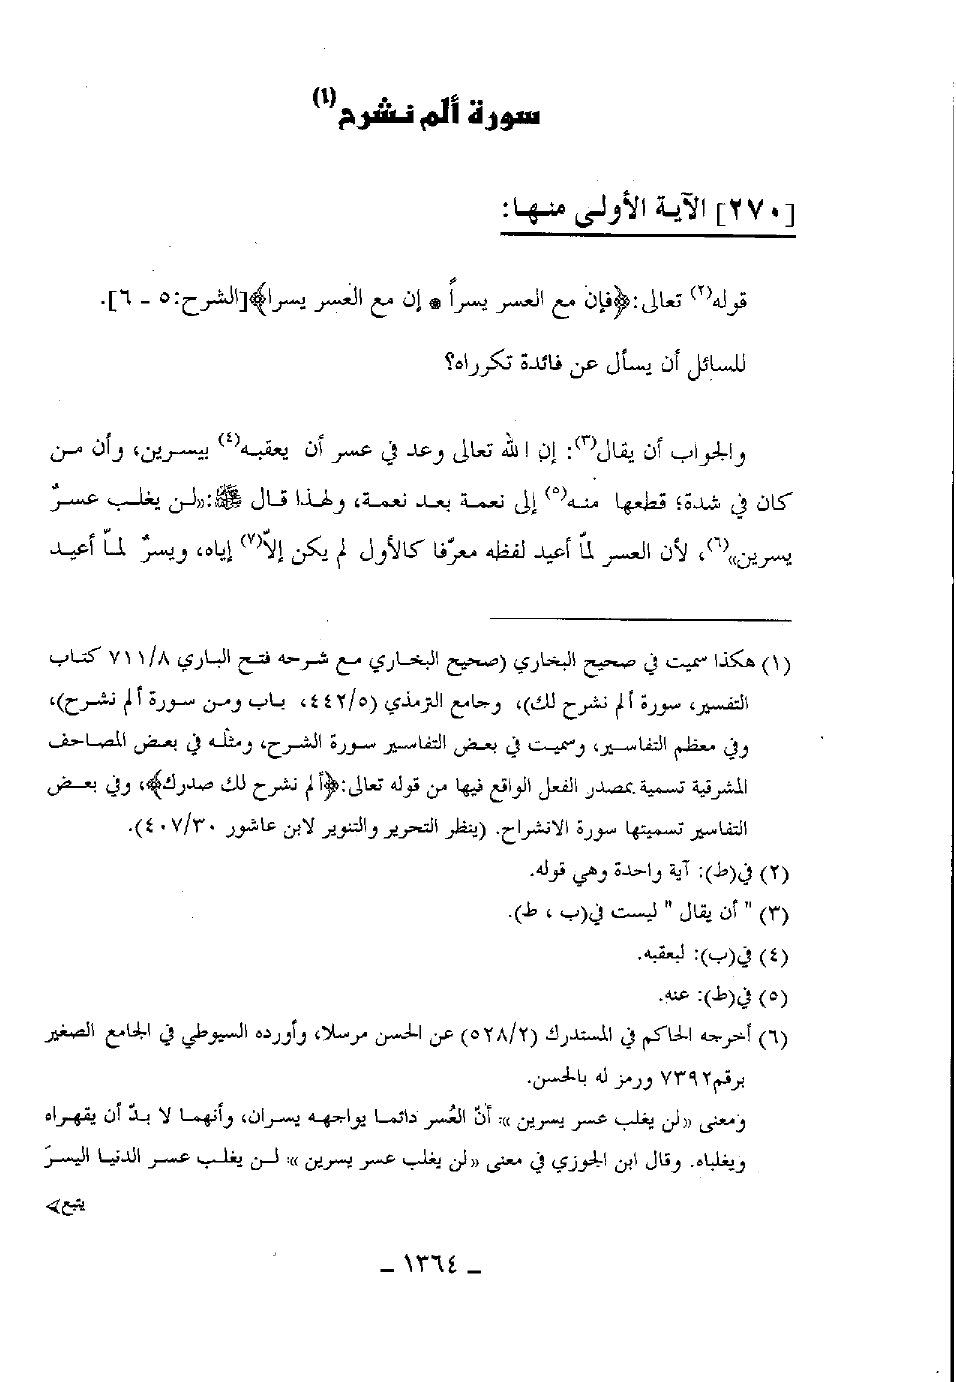 سورة ألم نشرح(١)
[٢٧٠] الآية الأولى منها:
قوله(٢) تعالى:﴿فإن مع العسر يسراً * إن مع العسر يسرا﴾[الشرح:٥ - ٦].
للسائل أن يسأل عن فائدة تكرراه؟
والجواب أن يقال(٣): إن الله تعالى وعد في عسر أن يعقبه(٤) بيسرين، وأن من
كان في شدة؛ قطعها منه(٥) إلى نعمة بعد نعمة، ولهذا قال ﷺ:«لن يغلب عسرٌ
يسرين»(٦)، لأن العسر لمّا أعيد لفظه معرّفا كالأول لم يكن إلاّ(٧) إياه، ويسرٌ لمّا أعيد
(١) هكذا سميت في صحيح البخاري (صحيح البخاري مع شرحه فتح الباري ٧١١/٨ كتاب
التفسير، سورة ألم نشرح لك)، وجامع الترمذي (٤٤٢/٥، باب ومن سورة ألم نشرح)،
وفي معظم التفاسير، وسميت في بعض التفاسير سورة الشرح، ومثله في بعض المصاحف
المشرقية تسمية بمصدر الفعل الواقع فيها من قوله تعالى:﴿ألم نشرح لك صدرك﴾، وفي بعض
التفاسير تسميتها سورة الانشراح. (ينظر التحرير والتنوير لابن عاشور ٤٠٧/٣٠).
(٢) في(ط): آية واحدة وهي قوله.
(٣) " أن يقال " ليست في(ب ، ط).
(٤) في(ب): ليعقبه.
(٥) في(ط): عنه.
(٦) أخرجه الحاكم في المستدرك (٥٢٨/٢) عن الحسن مرسلا، وأورده السيوطي في الجامع الصغير
برقم٧٣٩٢ ورمز له بالحسن.
ومعنى «لن يغلب عسر يسرين »: أنّ العُسر دائما يواجهه يسران، وأنهما لا بدّ أن يقهراه
ويغلباه. وقال ابن الجوزي في معنى «لن يغلب عسر يسرين »: لن يغلب عسر الدنيا اليسرَ
يتبع>
- ١٣٦٤ -